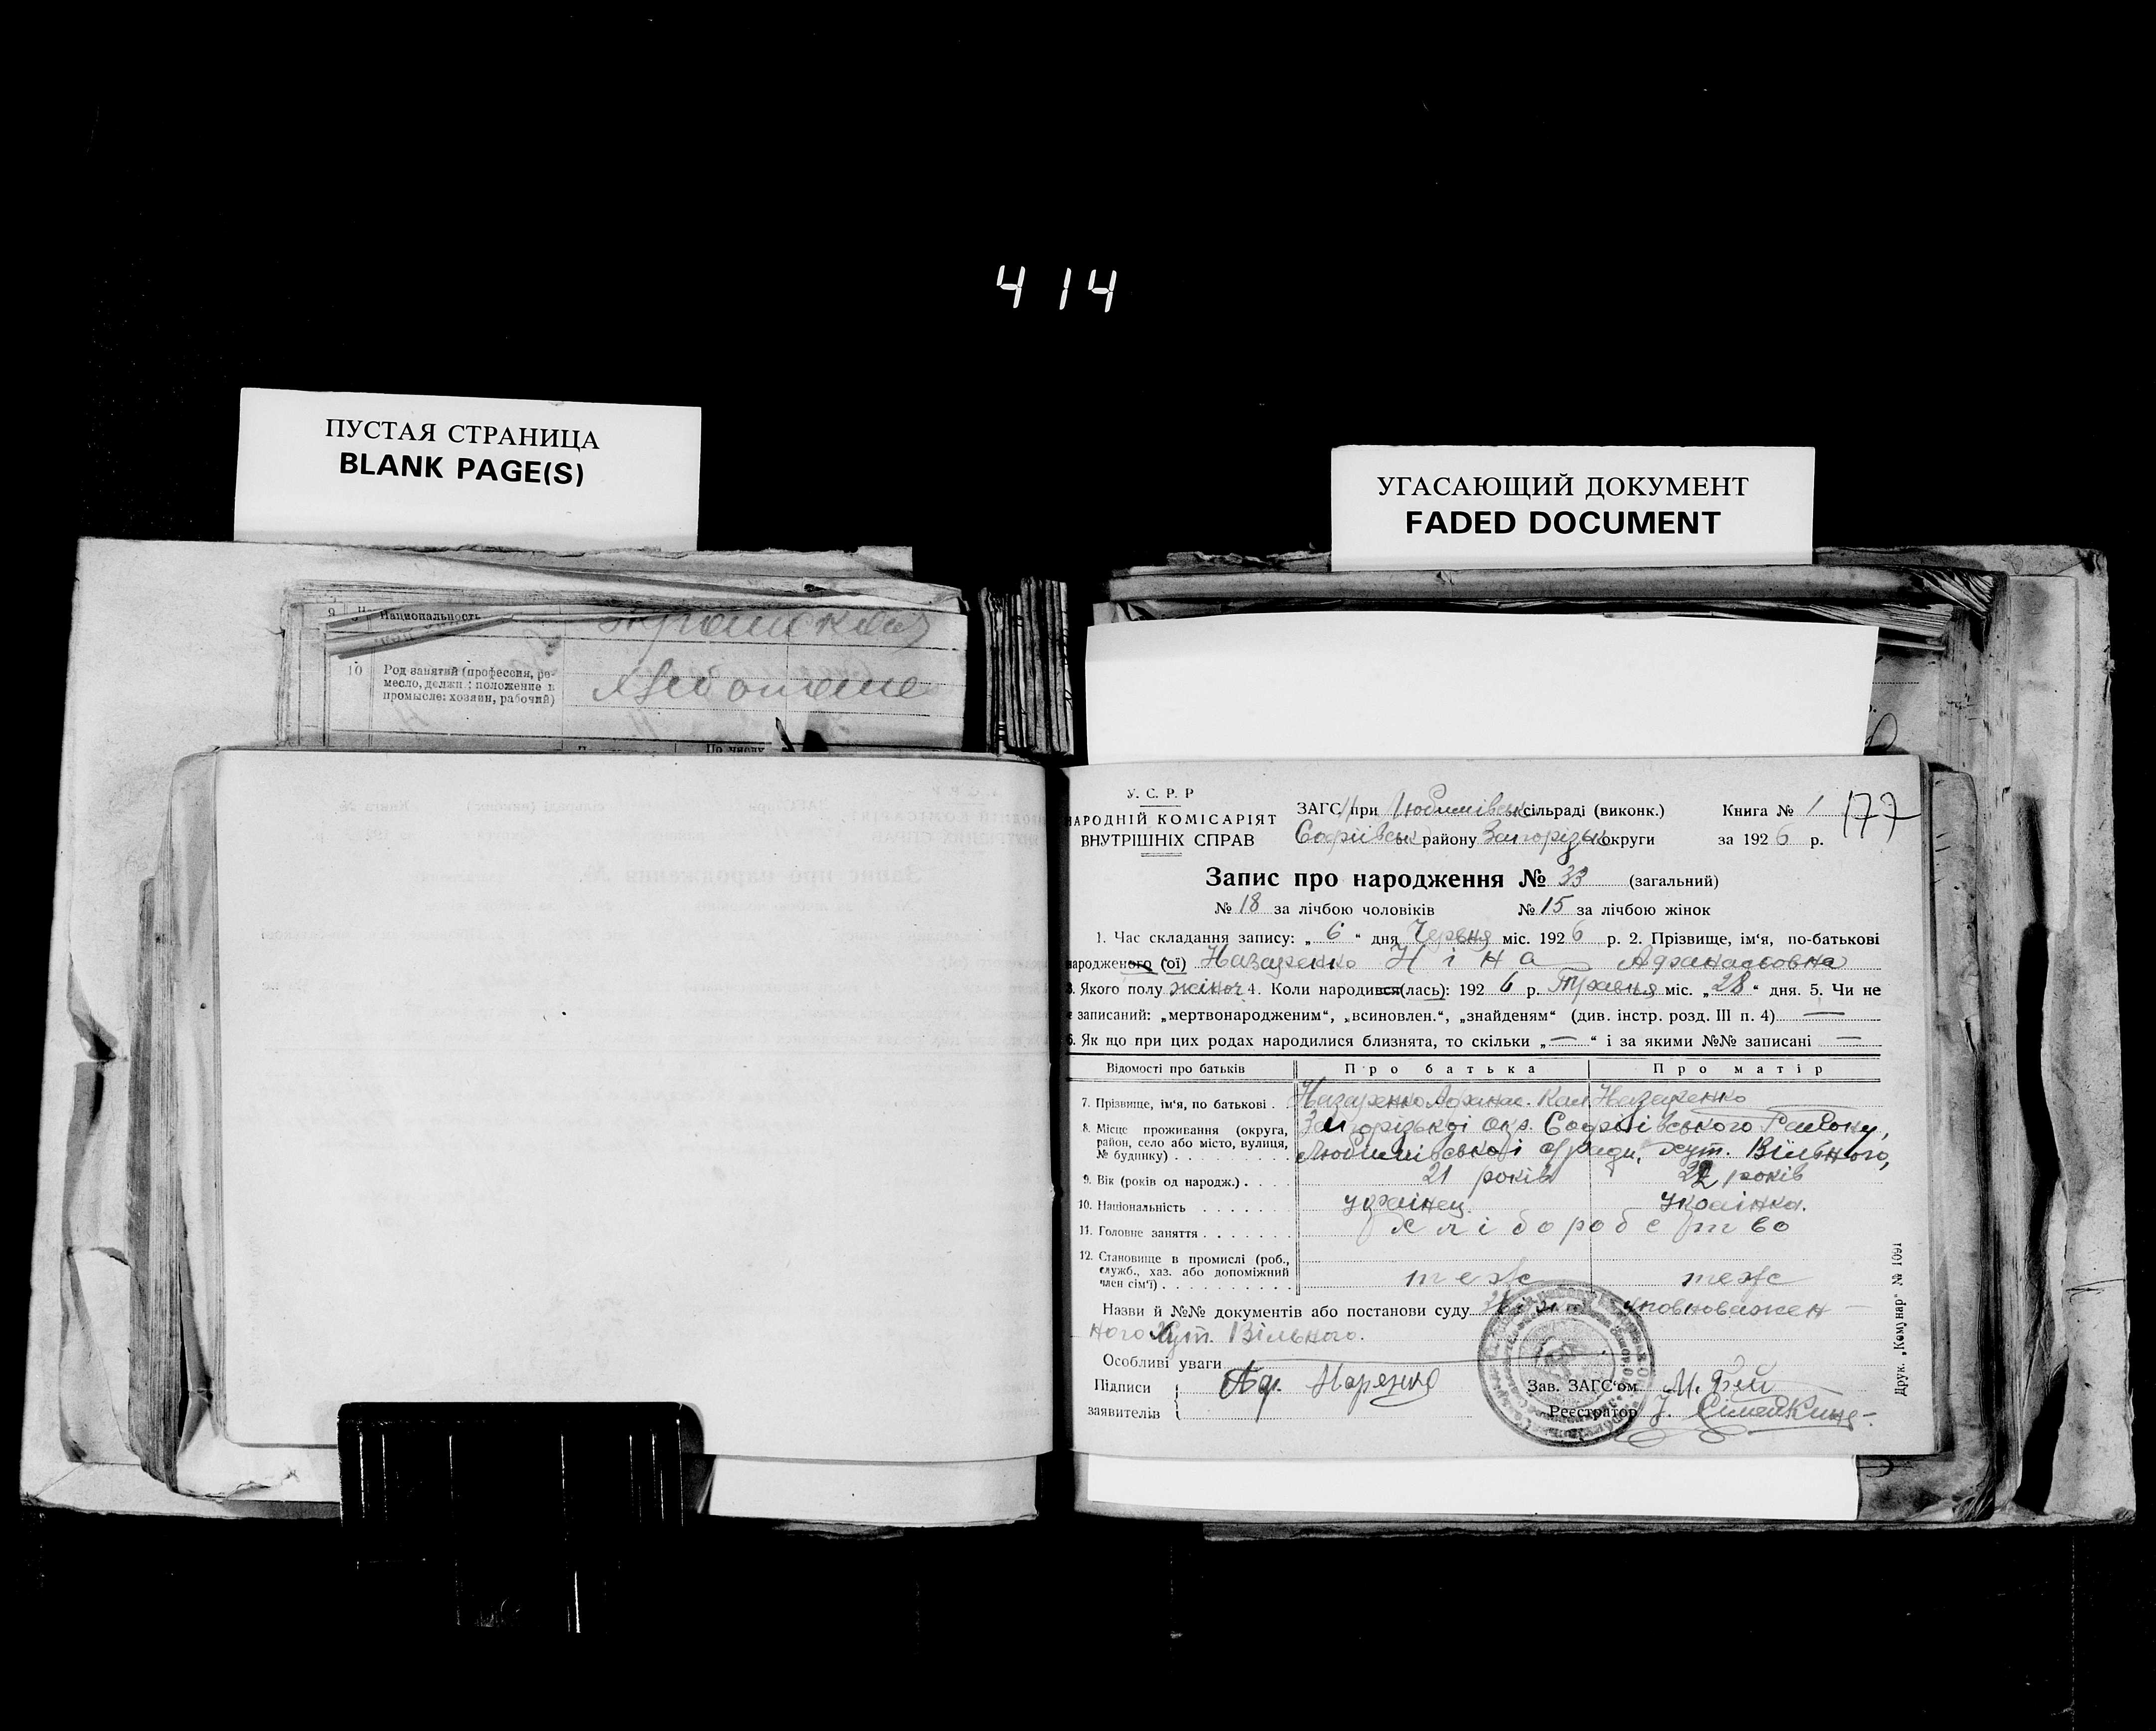 414
ПУСТАЯ СТРАНИЦА
BLANK PAGE(S)
УГАСАЮЩИЙ ДОКУМЕНТ
FADED DOCUMENT
9 Национальность
10 Род занятий (профессия, ре-
месло, должн : положение в
промысле: хозяин, рабочий)
У. С. Р. Р
НАРОДНІЙ КОМІСАРІЯТ
ВНУТРІШНІХ СПРАВ
ЗАГС при Любимівськ сільраді (виконк.) Книга № 1 177
Софіївськ району Запорізьк округи за 1926 р.
Запис про народження № 33 (загальний)
№ 18 за лічбою чоловіків № 15 за лічбою жінок
1. Час складання запису: „ 6 “ дня Червня міс. 1926 р. 2. Прізвище, ім‘я, по-батькові
народженого (ої) Назаренко Ніна Афанасьовна
3. Якого полу жіноч 4. Коли народився(лась): 1926 р. Травня міс. „28“ дня. 5. Чи не
є записаний: „мертвонародженим“, „всиновлен.“, „знайденям“ (див. інстр. розд. III п. 4) —
6. Як що при цих родах народилися близнята, то скільки „—“ і за якими №№ записані —
Відомості про батьків Про батька Про матір
7. Прізвище, ім‘я, по батькові . Назаренко Афанас. Кал Назаренко
8. Місце проживання (округа,
район, село або місто, вулиця,
№ будинку) . . . . . . . . .
Запорізької окр. Софіївського Району,
Любимівської с/ради, хут. Вільного,
9. Вік (років од народж.) . . . . 21 років 22 років
10. Національність . . . . . . Українец. Українка.
11. Головне заняття . . . . . . . хліборобство
12. Становище в промислі (роб.,
служб., хаз. або допоміжний
член сім‘ї) . . . . . . . . . . теж теж
Назви й №№ документів або постанови суду уповноважен
ного Хут. Вільного.
Особливі уваги
Підписи
заявителів
Аф.
Зав. ЗАГС‘ом М.
Реєстратор
Друк. „Комунар“ № 1091